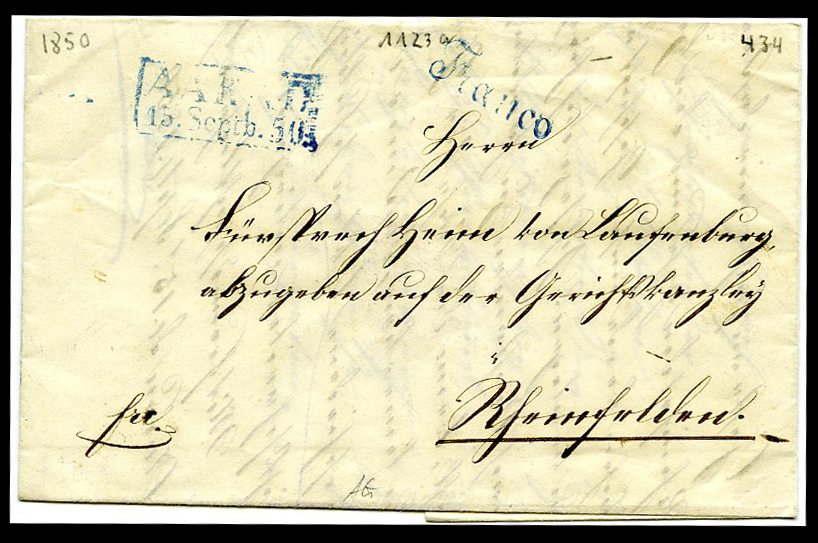 1850
1123a
434
AARAU
15. Septb. 50
Franco
Herrn
Fürsprech Heim von Laufenburg,
abzugeben auf der Gerichtskanzley
in
Rheinfelden.
fco.
AG